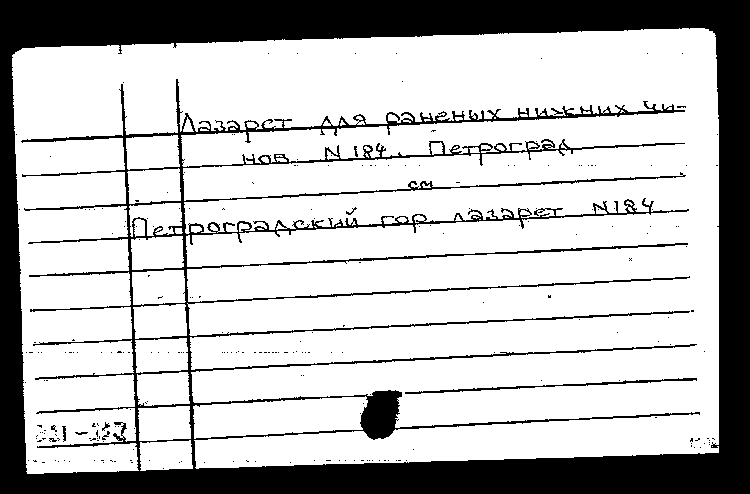 Лазарет для раненых нижних чи-
нов N 184. Петроград
см
Петроградский гор. лазарет N184